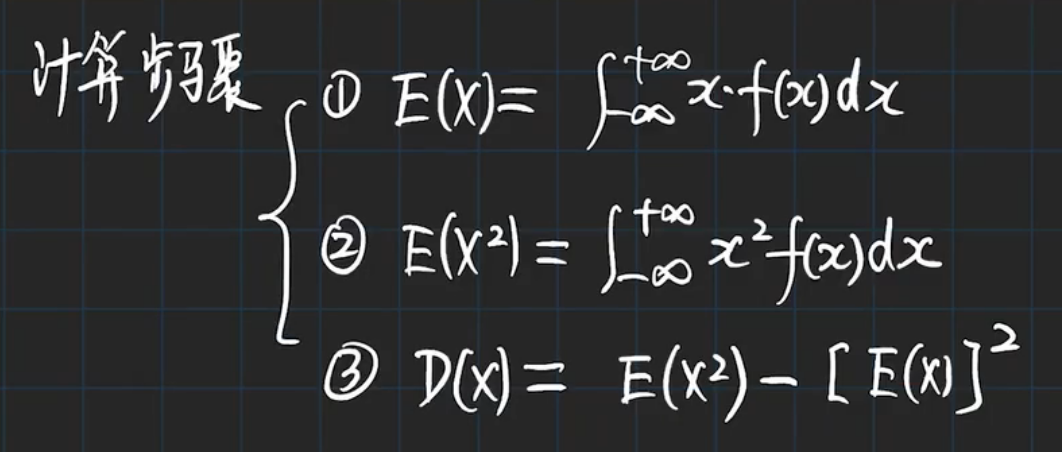 计算步骤
① E(X)= ∫_{-∞}^{+∞} x·f(x)dx
② E(X²)= ∫_{-∞}^{+∞} x²f(x)dx
③ D(X)= E(X²)-[E(X)]²